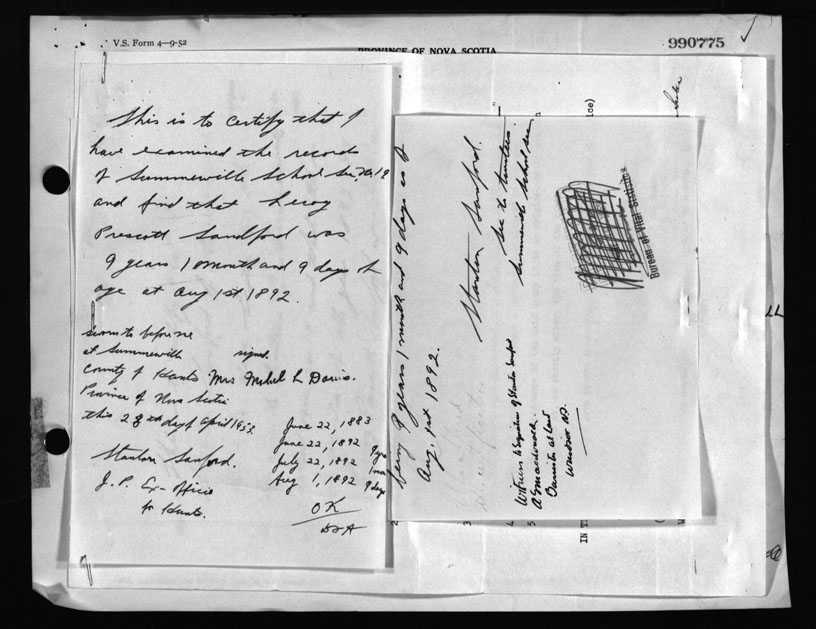 V.S. Form 4—9-52
PROVINCE OF NOVA SCOTIA
990775
This is to certify that I
have examined the records
of Summerville School Sec. No 19
and find that Leroy
Prescott Sandford was
9 years 1 month and 9 days of
age at Aug 1st 1892.
sworn to before me
at Summerville signed.
County of Hants Mrs Mabel L Davis.
Province of Nova Scotia
this 28th day of April 1953
Stanton Sanford.
J. P. Ex-Officio
for Hants.
June 22, 1883
June 22, 1892 9 yrs
July 22, 1892 1 mo
Aug 1, 1892 9 days
OK
being 9 years 1 month and 9 days as of
Aug. 1st 1892.
Stanton Sanford.
Sec to trustees.
Summerville School Sec
Witness to Signature of Stanton Sanford
Barrister at Law
Windsor N.S.
Bureau of Vital Statistics
2
3
4
5
IN T
ice)